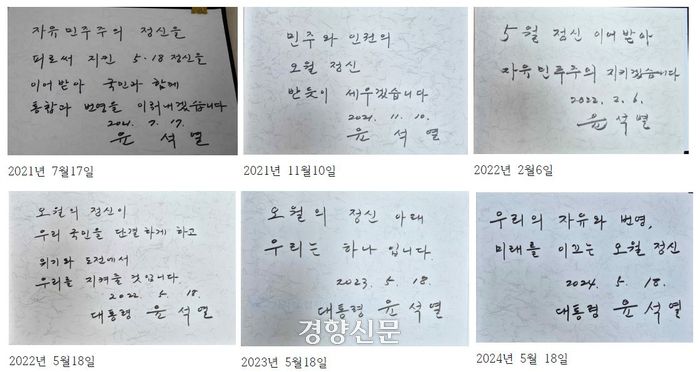 자유민주주의 정신을
피로써 지킨 5·18 정신을
이어받아 국민과 함께
통합과 번영을 이뤄내겠습니다
2021. 7. 17.
윤 석 열
2021년 7월17일
민주와 인권의
오월 정신
반듯이 세우겠습니다
2021. 11. 10.
윤 석 열
2021년 11월10일
5월 정신 이어받아
자유민주주의 지키겠습니다
2022. 2. 6.
윤 석 열
2022년 2월6일
오월의 정신이
우리 국민을 단결하게 하고
위기와 도전에서
우리를 지켜줄 것입니다
2022. 5. 18.
대통령 윤 석 열
2022년 5월18일
오월의 정신 아래
우리는 하나입니다.
2023. 5. 18.
대통령 윤 석 열
경향신문
2023년 5월18일
우리의 자유와 번영,
미래를 이끄는 오월 정신
2024. 5. 18.
대통령 윤 석 열
2024년 5월 18일